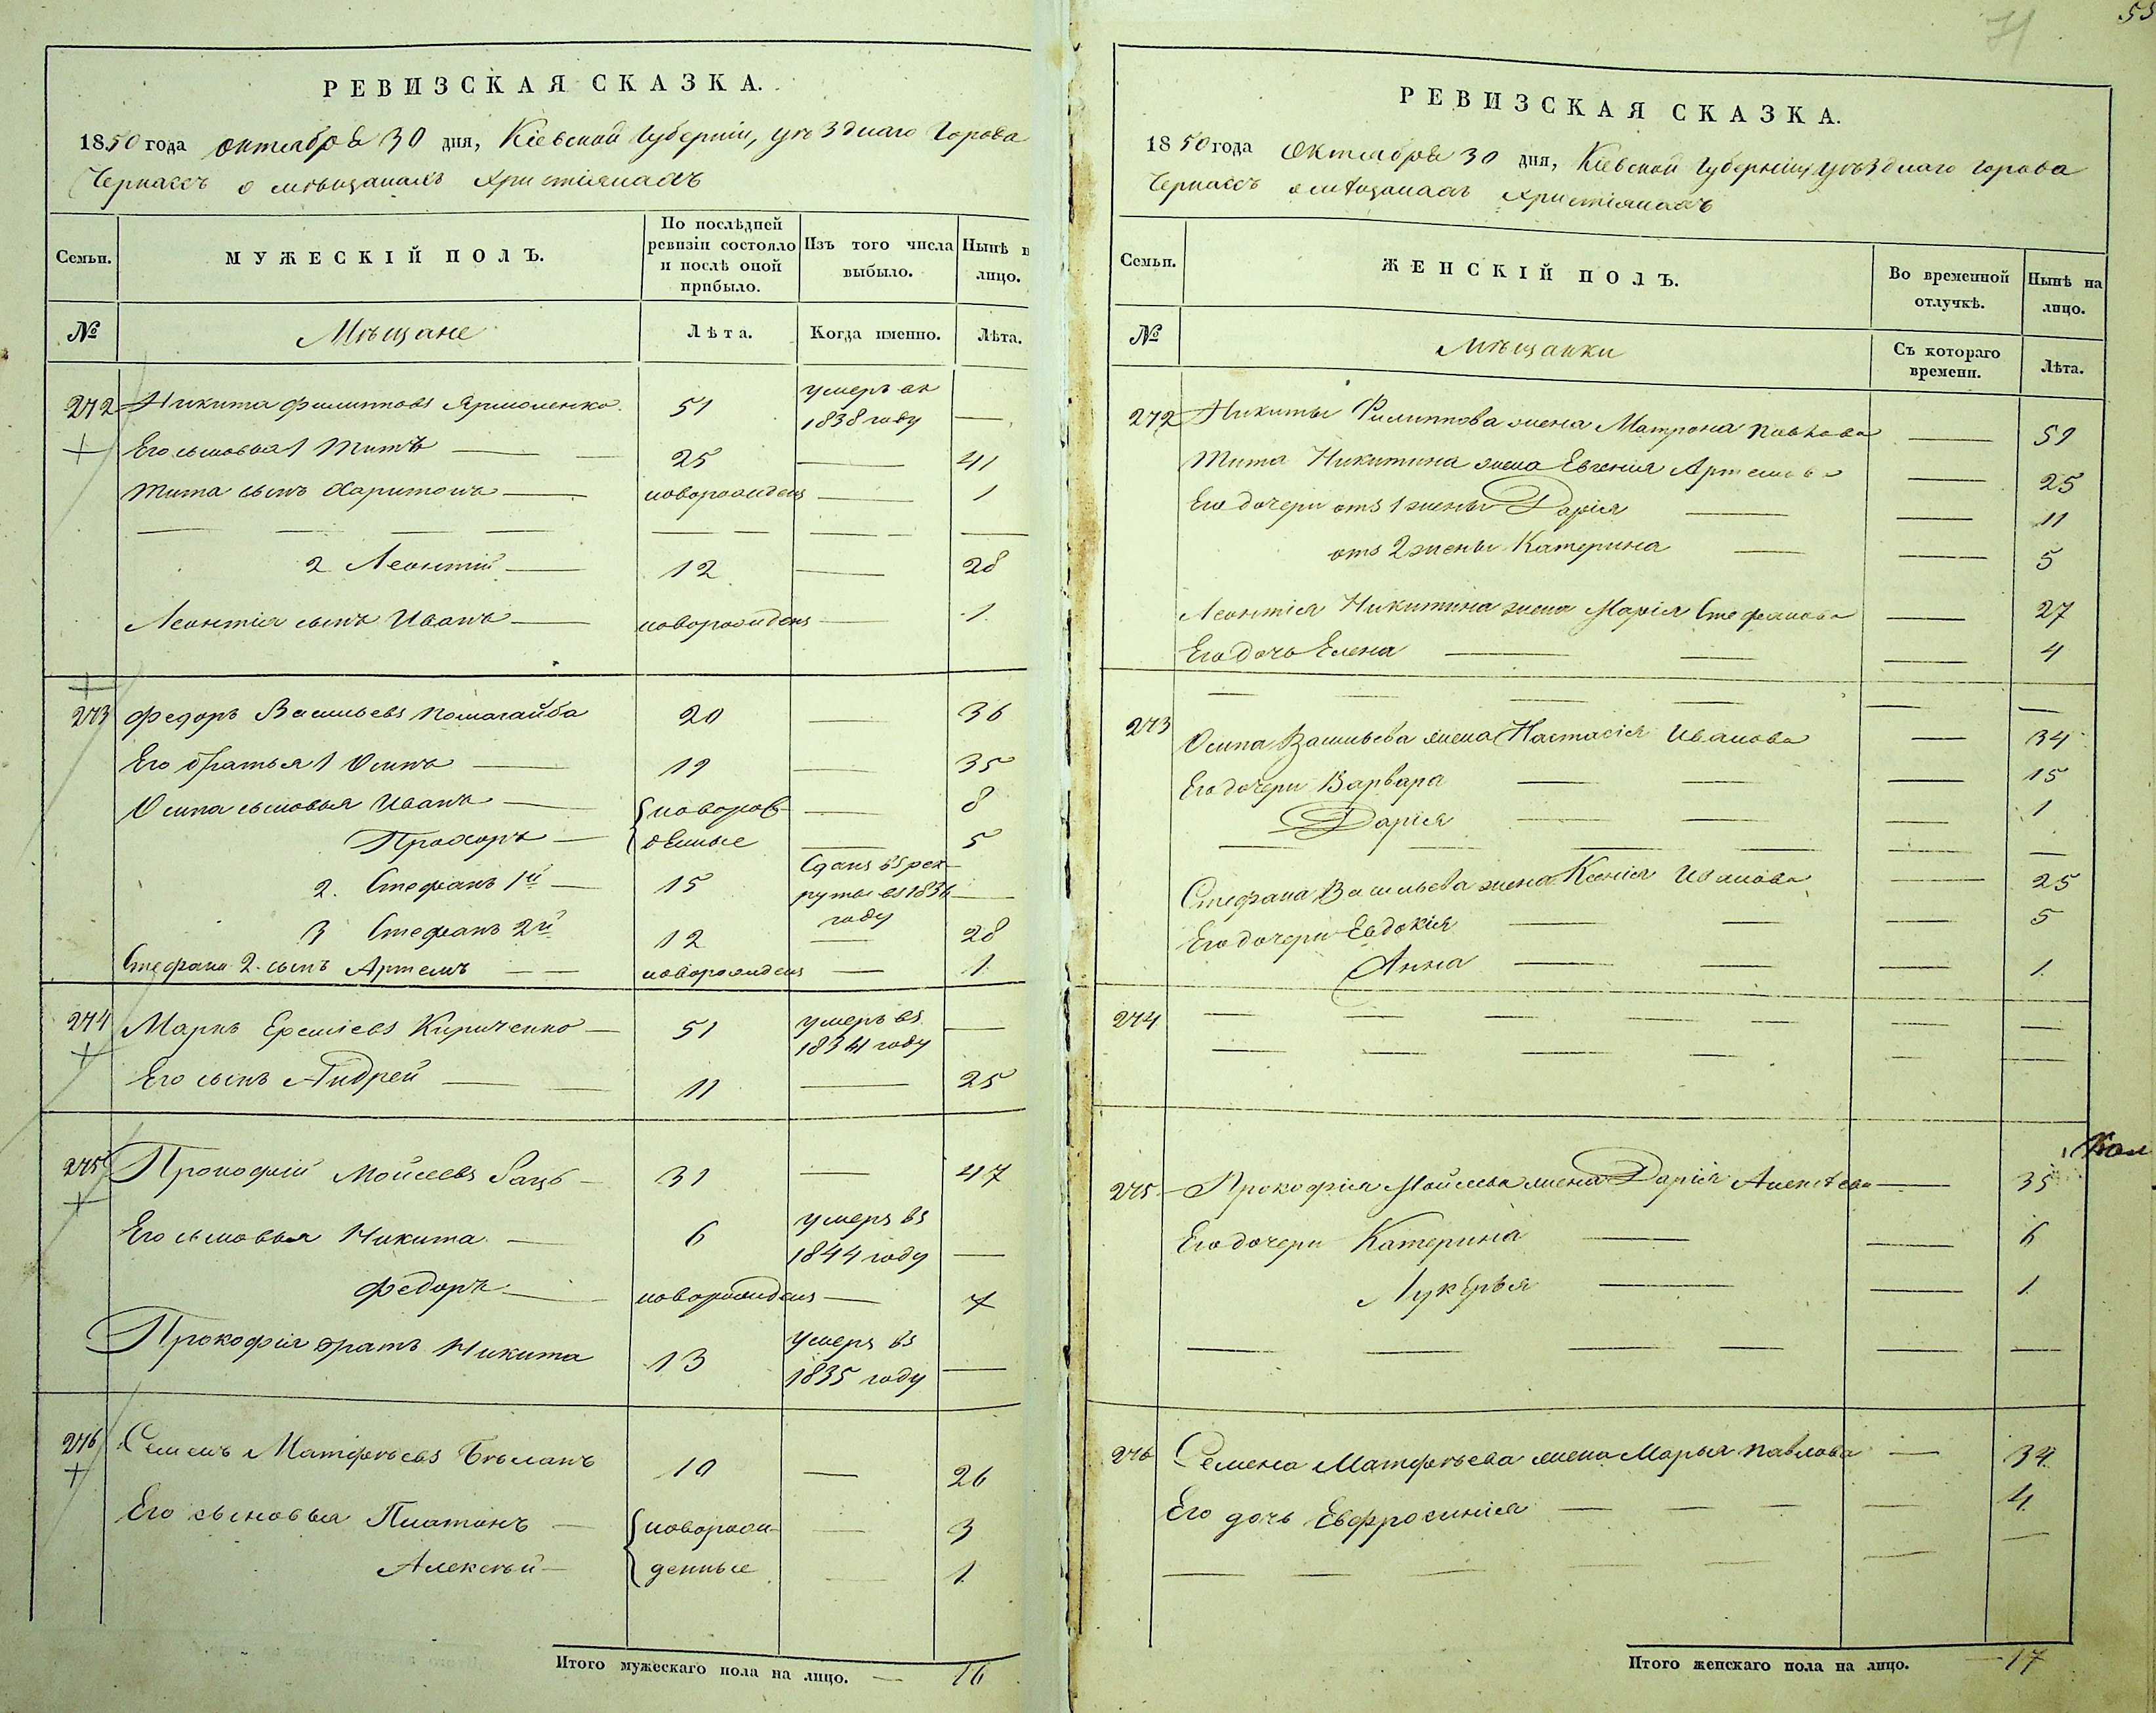 РЕВИЗСКАЯ СКАЗКА.
1850 года октября 30 дня, Кіевской Губерніи, уѣзднаго города
Черкассъ о мѣщанахъ христіянахъ
Семьи.
МУЖЕСКІЙ ПОЛЪ.
По послѣдней ревизіи состояло и послѣ оной прибыло.
Изъ того числа выбыло.
Нынѣ н лицо.
№
Мѣщане
Лѣта.
Когда именно.
Лѣта.
272 Никита Филипповъ Ярмоленко 51 умеръ въ 1838 году —
Его сыновья 1 Титъ — 25 — 41
Тита сынъ Харитонъ — новорожденъ — 1
2 Леонтій — 12 — 28
Леонтія сынъ Иванъ — новорожденъ — 1
273 Федоръ Васильевъ Помагайба 20 — 36
Его братья 1 Осипъ — 19 — 35
Осипа сыновья Иванъ — новорож- — 8
Прохоръ — денные — 5
2. Стефанъ 1й — 15 Сданъ въ рекруты въ 1836 году —
3 Стефанъ 2й 12 — 28
Стефана 2. сынъ Артемъ — новорожденъ — 1
274 Маркъ Ереміевъ Кириченко — 51 умеръ въ 1834 году —
Его сынъ Андрей — 11 — 25
275 Прокофій Мойсеевъ Заць — 31 — 47
Его сыновья Никита — 6 умеръ въ 1844 году —
Федоръ — новорожденъ — 7
Прокофія братъ Никита 13 умеръ въ 1835 году —
276 Семенъ Матфѣевъ Бѣланъ 10 — 26
Его сыновья Платонъ — новорож- — 3
Алексѣй — денные — 1
Итого мужескаго пола на лицо. — 16
55
71
РЕВИЗСКАЯ СКАЗКА.
1850 года Октября 30 дня, Кіевской Губерніи уѣзднаго города
Черкассъ о мѣщанахъ христіянахъ
Семьи.
ЖЕНСКІЙ ПОЛЪ.
Во временной отлучкѣ.
Нынѣ на лицо.
№
Мѣщанки
Съ котораго времени.
Лѣта.
272 Никиты Филиппова жена Матрона Павлова — 59
Тита Никитина жена Евгенія Артемова — 25
Его дочери отъ 1 жены Дарія — 11
отъ 2 жены Катерина — 5
Леонтія Никитина жена Марія Стефанова — 27
Его дочь Елена — 4
273
Осипа Васильева жена Настасія Иванова — 34
Его дочери Варвара — 15
Дарія — 1
Стефана Васильева жена Ксенія Иванова — 25
Его дочери Евдокія — 5
Анна — 1.
274 — — —
275 Прокофія Мойсеева жена Дарія Алексѣева — 35
Его дочери Катерина — 6
Лукерья — 1.
276 Семена Матфѣева жена Марья Павлова — 34.
Его дочь Евфросинія — 4.
Итого женскаго пола на лицо. — 17